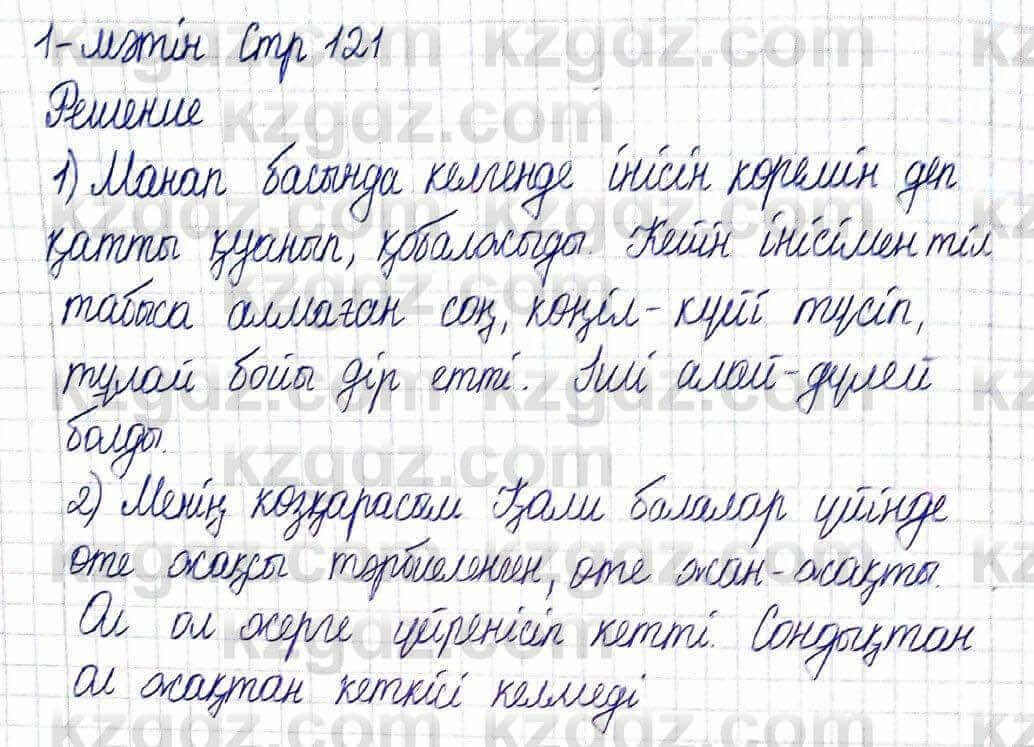 1-мәтін Стр 121
Решение
1) Манап басында келгенде інісін көремін деп
қатты қуанып, қобалжыды. Кейін інісімен тіл
табыса алмаған соң, көңіл-күйі түсіп,
тұлай бойы дір етті. Іші алай-дүлей
болды.
2) Менің көзқарасам Қали балалар үйінде
өте жақсы тәрбиеленген, өте жан-жақты.
Ол ол жерге үйренісіп кетті. Сондықтан
ол жақтан кеткісі келмеді
kzgdz.com